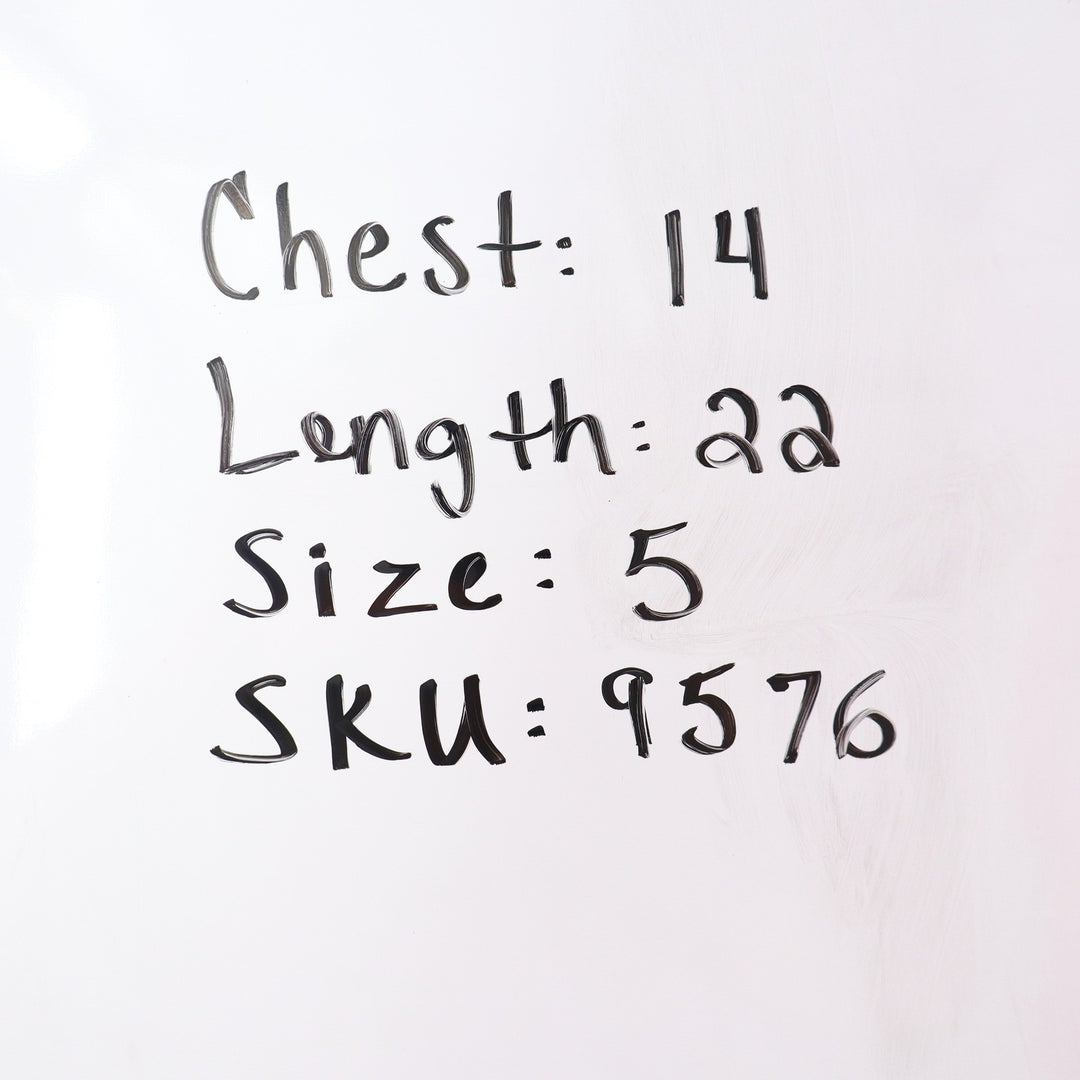 Chest: 14
Length: 22
Size: 5
SKU: 9576